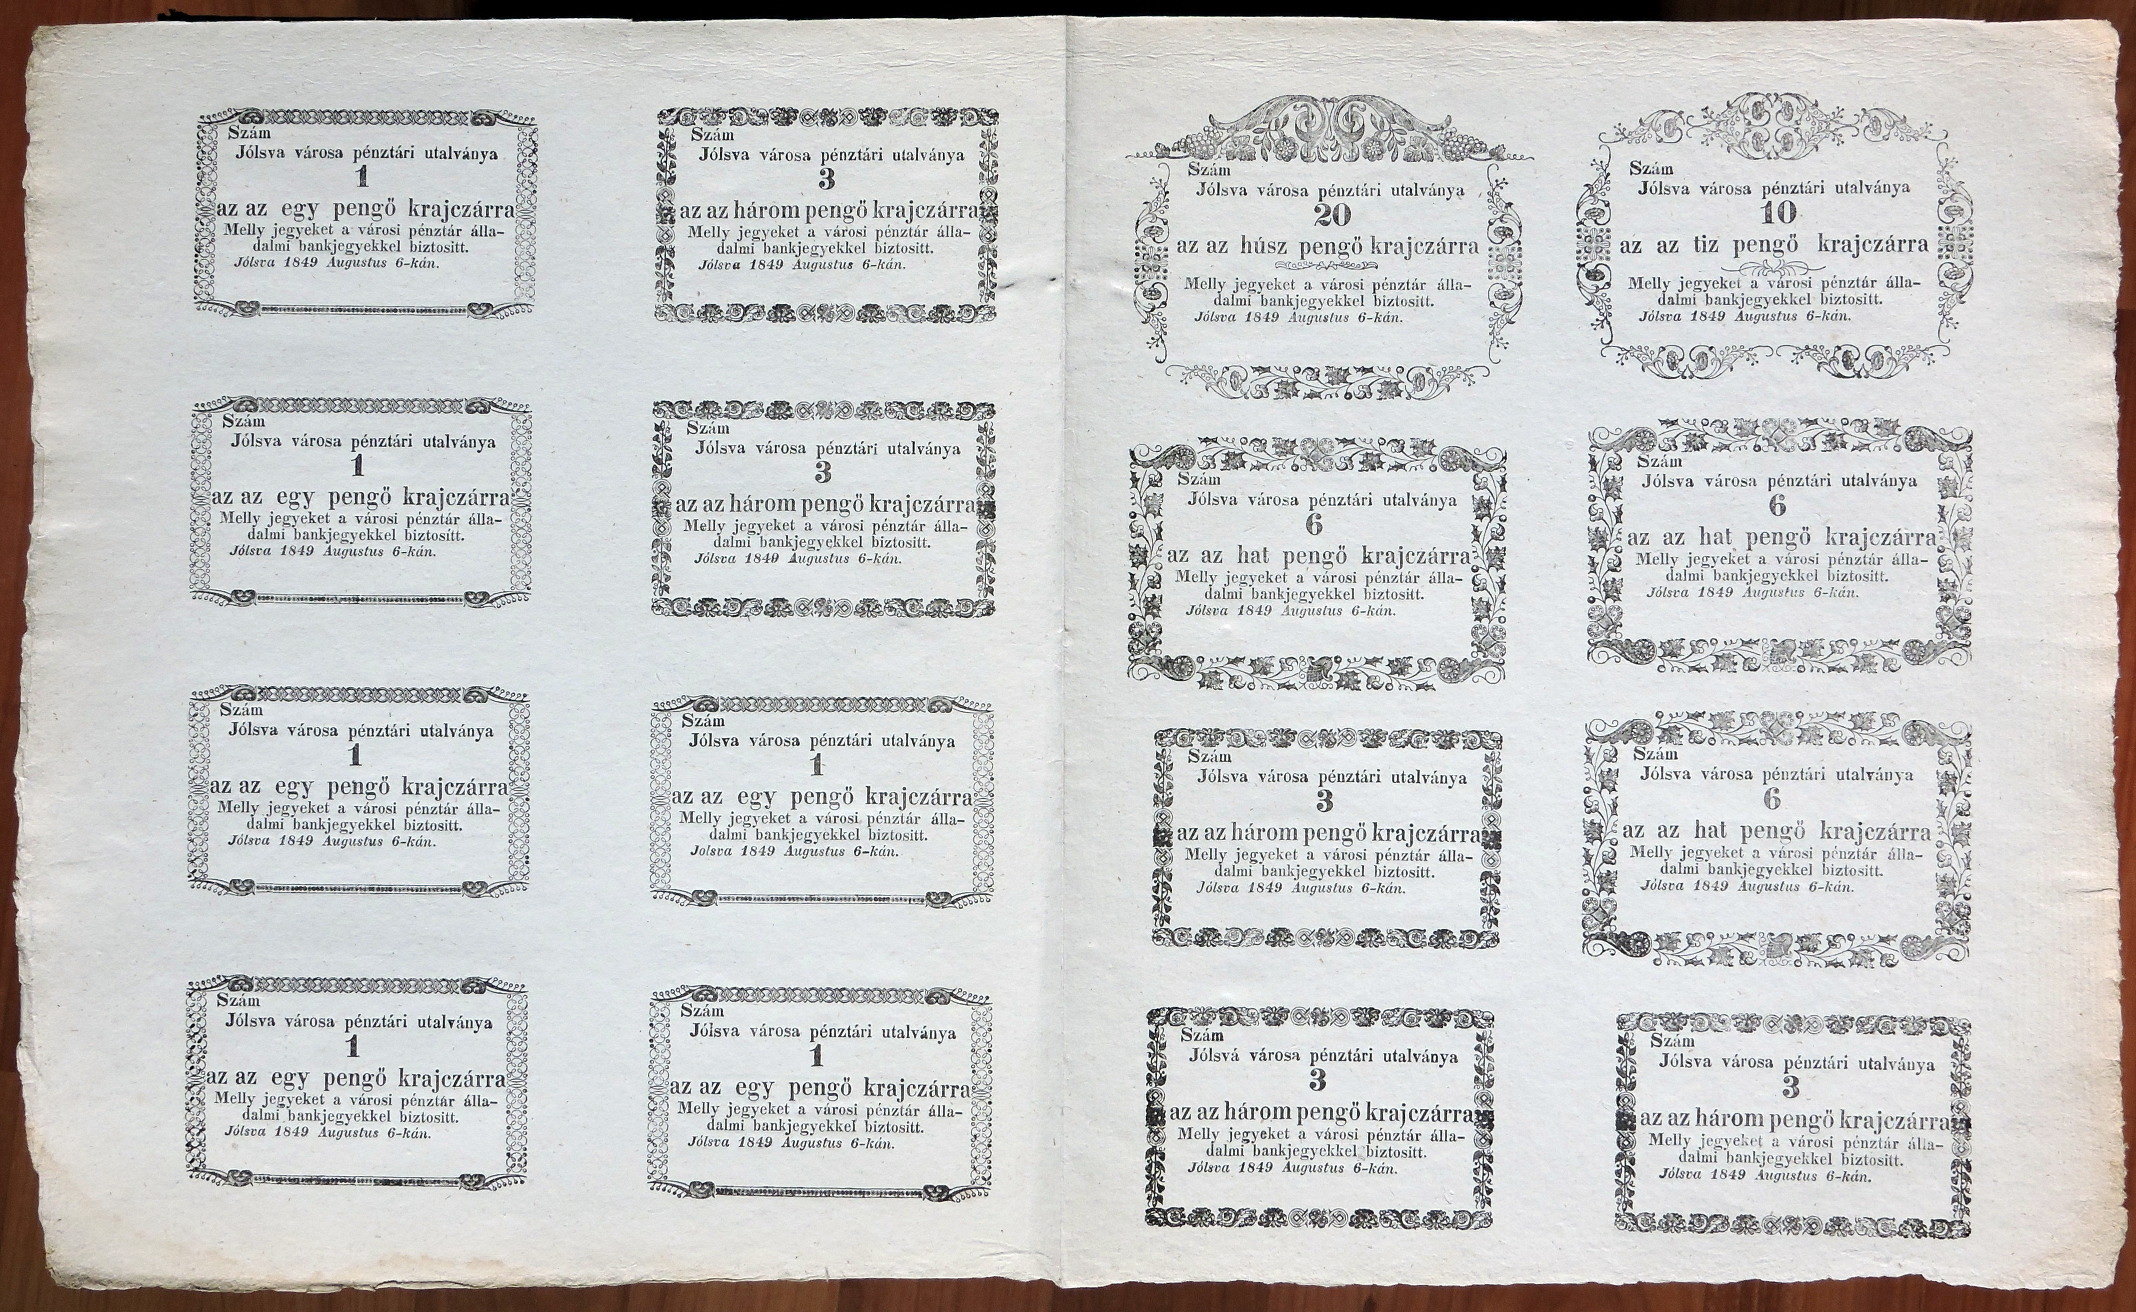 Szám
Jólsva városa pénztári utalványa
1
az az egy pengő krajczárra
Melly jegyeket a városi pénztár álla-
dalmi bankjegyekkel biztositt.
Jólsva 1849 Augustus 6-kán.
Szám
Jólsva városa pénztári utalványa
3
az az három pengő krajczárra
Melly jegyeket a városi pénztár álla-
dalmi bankjegyekkel biztositt.
Jólsva 1849 Augustus 6-kán.
Szám
Jólsva városa pénztári utalványa
1
az az egy pengő krajczárra
Melly jegyeket a városi pénztár álla-
dalmi bankjegyekkel biztositt.
Jólsva 1849 Augustus 6-kán.
Szám
Jólsva városa pénztári utalványa
3
az az három pengő krajczárra
Melly jegyeket a városi pénztár álla-
dalmi bankjegyekkel biztositt.
Jólsva 1849 Augustus 6-kán.
Szám
Jólsva városa pénztári utalványa
1
az az egy pengő krajczárra
Melly jegyeket a városi pénztár álla-
dalmi bankjegyekkel biztositt.
Jólsva 1849 Augustus 6-kán.
Szám
Jólsva városa pénztári utalványa
1
az az egy pengő krajczárra
Melly jegyeket a városi pénztár álla-
dalmi bankjegyekkel biztositt.
Jolsva 1849 Augustus 6-kán.
Szám
Jólsva városa pénztári utalványa
1
az az egy pengő krajczárra
Melly jegyeket a városi pénztár álla-
dalmi bankjegyekkel biztositt.
Jólsva 1849 Augustus 6-kán.
Szám
Jólsva városa pénztári utalványa
1
az az egy pengő krajczárra
Melly jegyeket a városi pénztár álla-
dalmi bankjegyekkel biztositt.
Jólsva 1849 Augustus 6-kán.
Szám
Jólsva városa pénztári utalványa
20
az az húsz pengő krajczárra
Melly jegyeket a városi pénztár álla-
dalmi bankjegyekkel biztositt.
Jólsva 1849 Augustus 6-kán.
Szám
Jólsva városa pénztári utalványa
10
az az tiz pengő krajczárra
Melly jegyeket a városi pénztár álla-
dalmi bankjegyekkel biztositt.
Jólsva 1849 Augustus 6-kán.
Szám
Jólsva városa pénztári utalványa
6
az az hat pengő krajczárra
Melly jegyeket a városi pénztár álla-
dalmi bankjegyekkel biztositt.
Jólsva 1849 Augustus 6-kán.
Szám
Jólsva városa pénztári utalványa
6
az az hat pengő krajczárra
Melly jegyeket a városi pénztár álla-
dalmi bankjegyekkel biztositt.
Jólsva 1849 Augustus 6-kán.
Szám
Jólsva városa pénztári utalványa
3
az az három pengő krajczárra
Melly jegyeket a városi pénztár álla-
dalmi bankjegyekkel biztositt.
Jólsva 1849 Augustus 6-kán.
Szám
Jólsva városa pénztári utalványa
6
az az hat pengő krajczárra
Melly jegyeket a városi pénztár álla-
dalmi bankjegyekkel biztositt.
Jólsva 1849 Augustus 6-kán.
Szám
Jólsvá városa pénztári utalványa
3
az az három pengő krajczárra
Melly jegyeket a városi pénztár álla-
dalmi bankjegyekkel biztositt.
Jólsva 1849 Augustus 6-kán.
Szám
Jólsva városa pénztári utalványa
3
az az három pengő krajczárra
Melly jegyeket a városi pénztár álla-
dalmi bankjegyekkel biztositt.
Jólsva 1849 Augustus 6-kán.